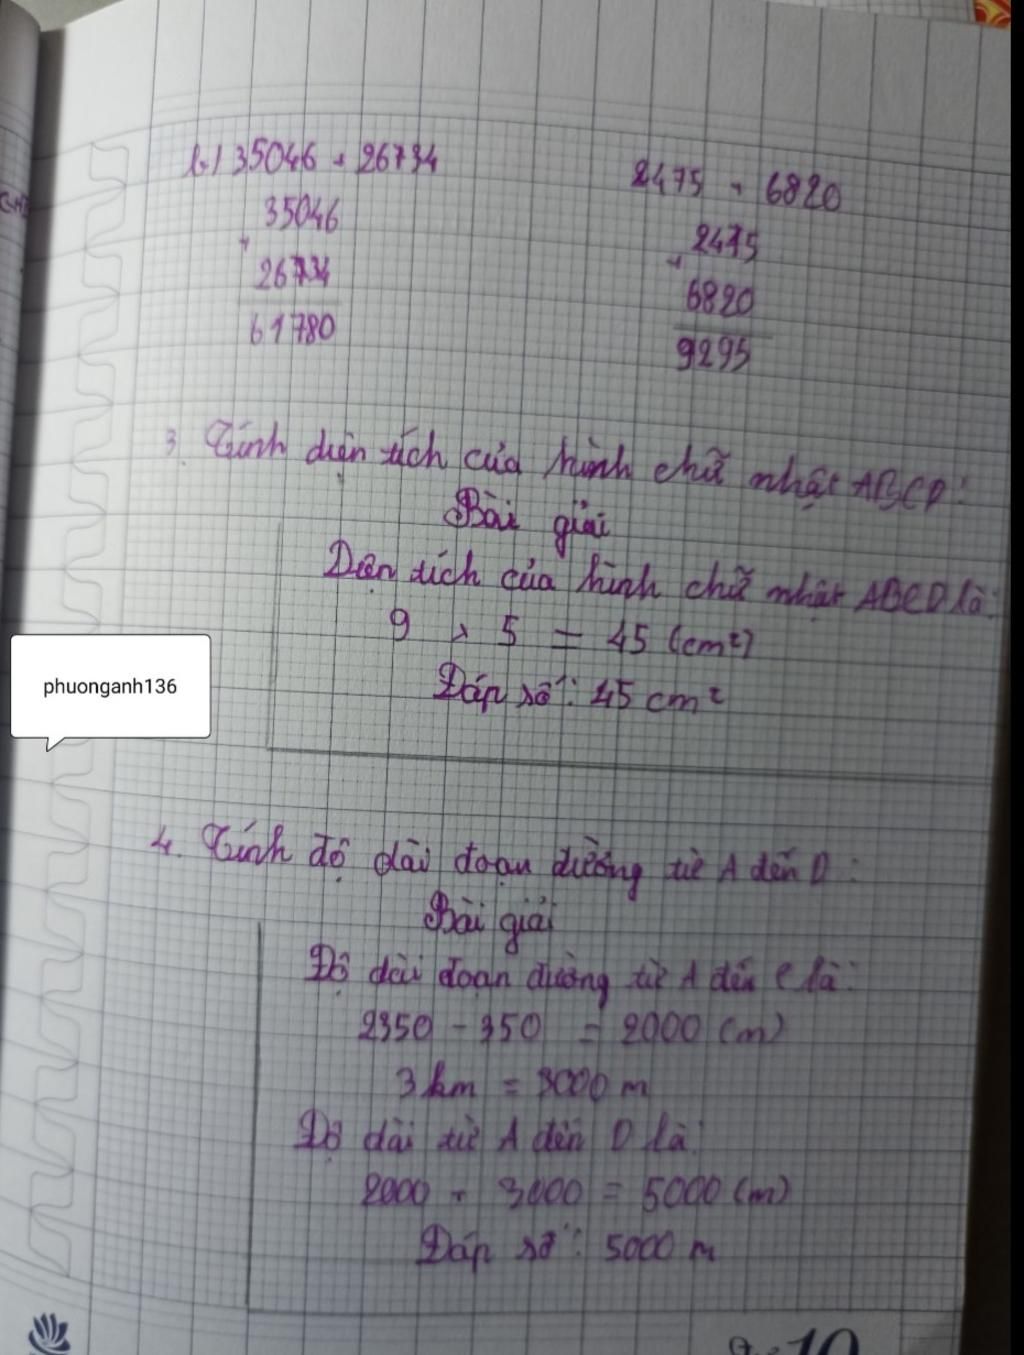 b) 35046 + 26734
35046
+
26734
61780
2475 + 6820
2475
+
6820
9295
3. Tính diện tích của hình chữ nhật ABCD:
Bài giải
Diện tích của hình chữ nhật ABCD là:
9 x 5 = 45 (cm²)
Đáp số: 45 cm²
phuonganh136
4. Tính độ dài đoạn đường từ A đến D:
Bài giải
Độ dài đoạn đường từ A đến C là:
2350 - 350 = 2000 (m)
3km = 3000 m
Độ dài từ A đến D là:
2000 + 3000 = 5000 (m)
Đáp số: 5000 m